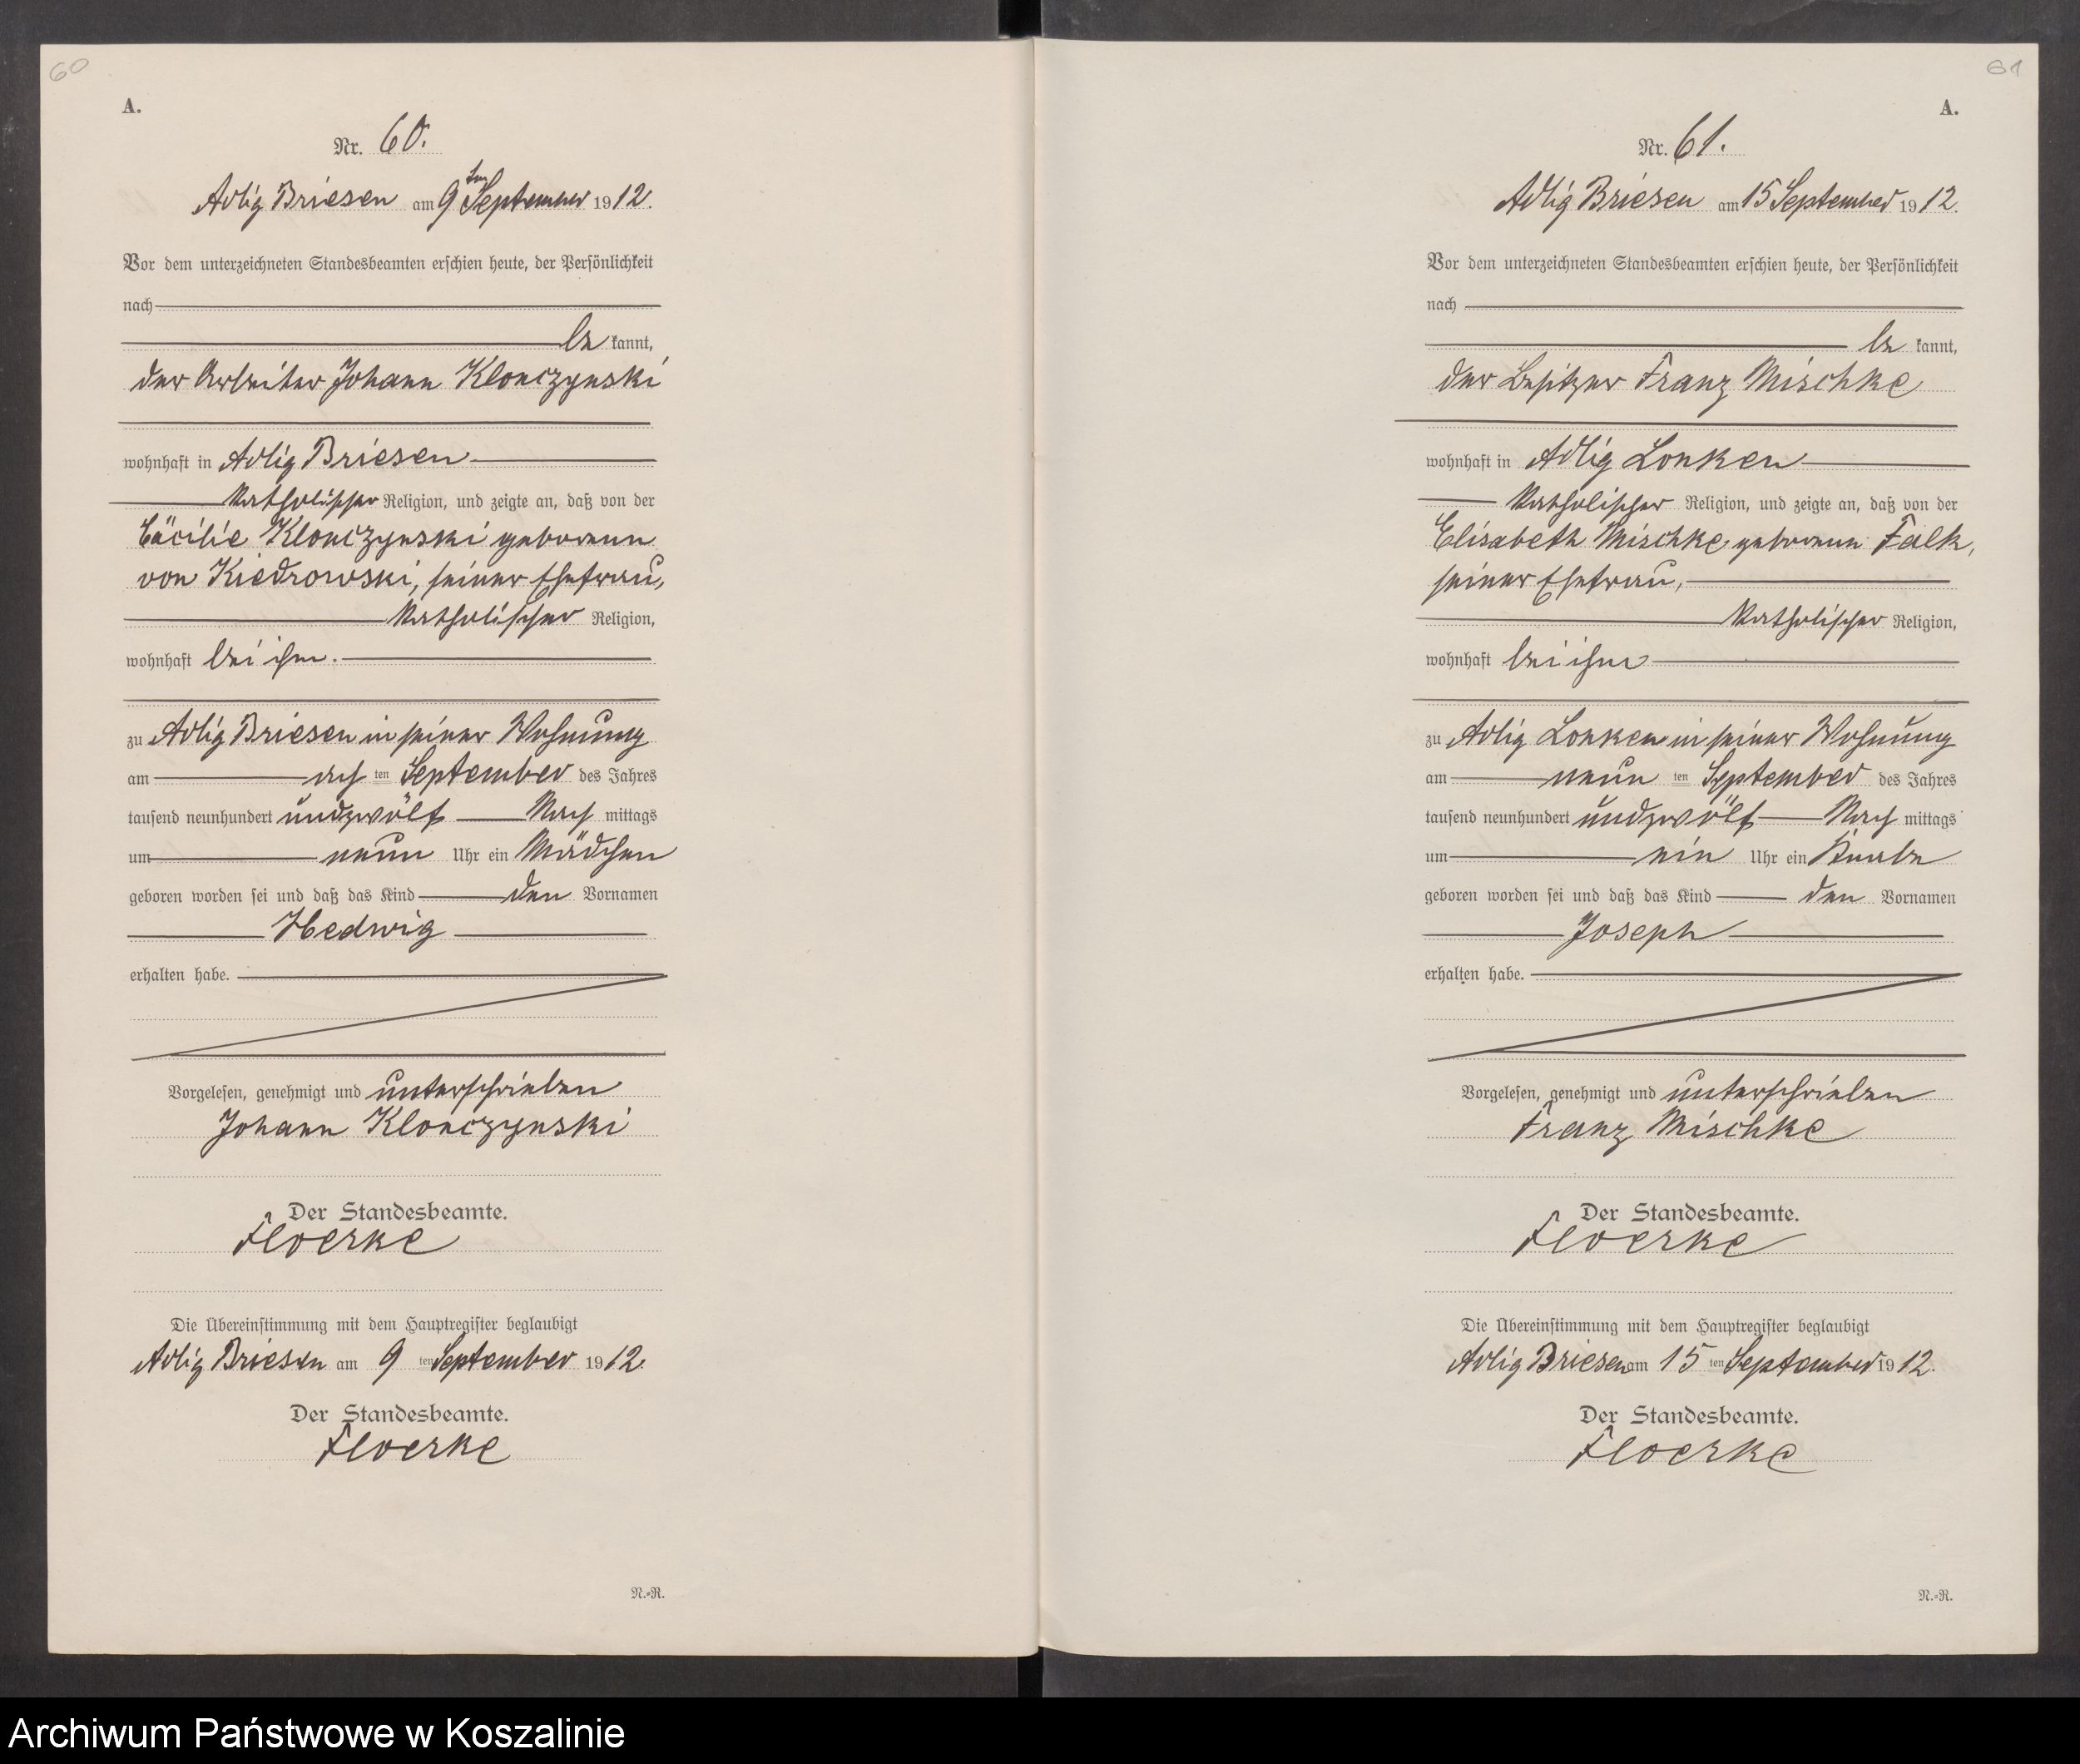 60
A.
Nr. 60.
Adlig Briesen am 9ten September 1912.
Vor dem unterzeichneten Standesbeamten erschien heute, der Persönlichkeit
nach
be kannt,
der Arbeiter Johann Klonczynski
wohnhaft in Adlig Briesen
katholischer Religion, und zeigte an, daß von der
Cäcilie Klonczynski geborenen
von Kiedrowski, seiner Ehefrau,
katholischer Religion,
wohnhaft bei ihm.
zu Adlig Briesen in seiner Wohnung
am ach ten September des Jahres
tausend neunhundert und zwölf Nach mittags
um neun Uhr ein Mädchen
geboren worden sei und daß das Kind den Vornamen
Hedwig
erhalten habe.
Vorgelesen, genehmigt und unterschrieben
Johann Klonczynski
Der Standesbeamte.
Floerke
Die Übereinstimmung mit dem Hauptregister beglaubigt
Adlig Briesen am 9 ten September 1912.
Der Standesbeamte.
Floerke
N.-R.
61
A.
Nr. 61.
Adlig Briesen am 15 September 1912.
Vor dem unterzeichneten Standesbeamten erschien heute, der Persönlichkeit
nach
be kannt,
der Besitzer Franz Mischke
wohnhaft in Adlig Lonken
katholischer Religion, und zeigte an, daß von der
Elisabeth Mischke geborenen Falk,
seiner Ehefrau,
katholischer Religion,
wohnhaft bei ihm
zu Adlig Lonken in seiner Wohnung
am neun ten September des Jahres
tausend neunhundert und zwölf Nach mittags
um ein Uhr ein Knabe
geboren worden sei und daß das Kind den Vornamen
Joseph
erhalten habe.
Vorgelesen, genehmigt und unterschrieben
Franz Mischke
Der Standesbeamte.
Floerke
Die Übereinstimmung mit dem Hauptregister beglaubigt
Adlig Briesen am 15 ten September 1912.
Der Standesbeamte.
Floerke
N.-R.
Archiwum Państwowe w Koszalinie